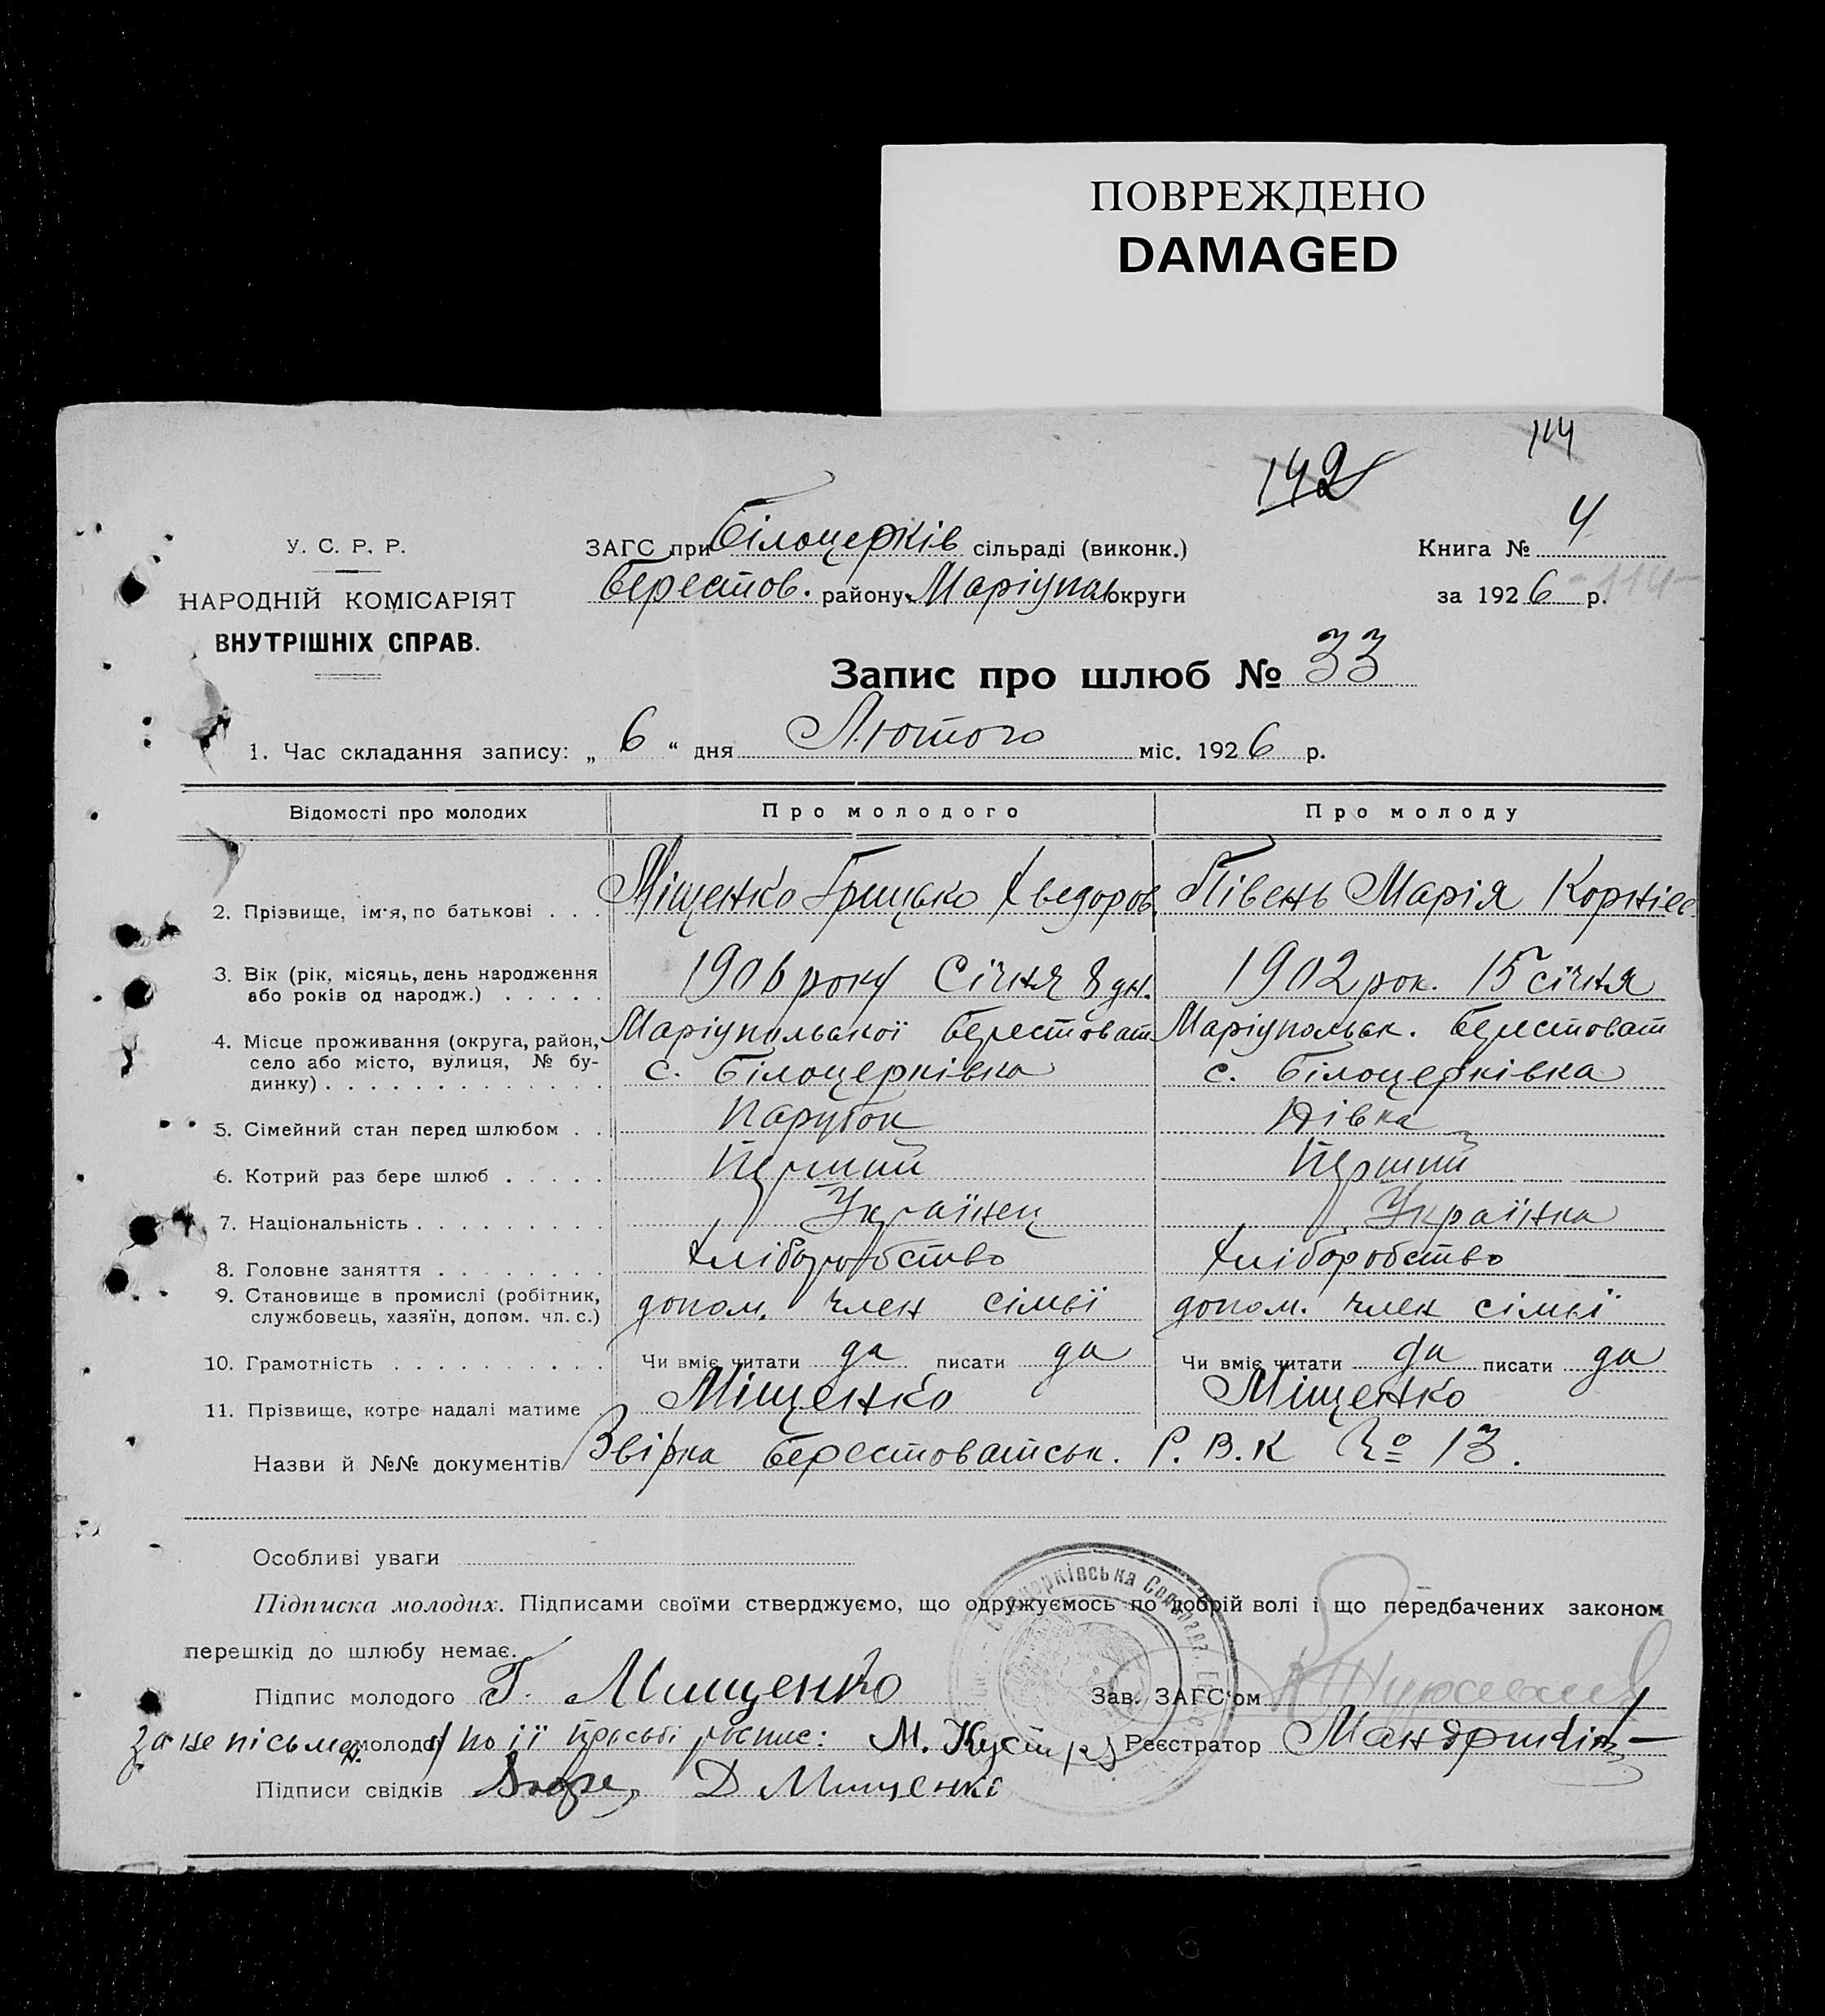 ПОВРЕЖДЕНО
DAMAGED
114
142
У. С. Р. Р.
НАРОДНІЙ КОМІСАРІЯТ
ВНУТРІШНІХ СПРАВ.
ЗАГС при Білоцерків сільраді (виконк.)
Берестов. району Маріупол округи
Книга № 4
за 1926 р.
-114-
Запис про шлюб № 33
1. Час складання запису: „ 6 “ дня Лютого міс. 1926 р.
Відомості про молодих Про молодого Про молоду
2. Прізвище, ім'я, по батькові . . . Міщенко Грицько Хведоров. Півень Марія Корніев.
3. Вік (рік, місяць, день народження
або років од народж.) . . . . . 1906 року Січня 8 дн. 1902 рок. 15 січня
4. Місце проживання (округа, район, Маріупольської Берестоват Маріупольськ. Берестоват
село або місто, вулиця, № бу- с. Білоцерківка с. Білоцерківка
динку) . . . . . . . . . . . . .
5. Сімейний стан перед шлюбом . . Парубок Дівка
6. Котрий раз бере шлюб . . . . . Перший Перший
7. Національність . . . . . . . . . Українец Українка
8. Головне заняття . . . . . . . . Хліборобство Хліборобство
9. Становище в промислі (робітник,
службовець, хазяїн, допом. чл. с.) допом. член сімьї допом. член сімьї
10. Грамотність . . . . . . . . . . Чи вміє читати да писати да Чи вміє читати да писати да
11. Прізвище, котре надалі матиме Міщенко Міщенко
Назви й №№ документів Звірка Берестоватськ. Р.В.К № 13.
Особливі уваги
Підписка молодих. Підписами своїми стверджуємо, що одружуємось по добрій волі і що передбачених законом
перешкід до шлюбу немає.
Підпис молодого Г. Мищенко Зав. ЗАГС'ом
за не пісьмен. молодої по її просьбі роспис: М. Реєстратор
Підписи свідків Д Мищенко